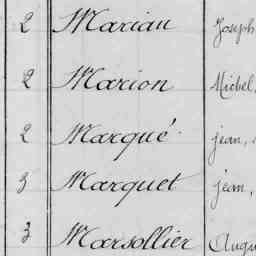 2 Mariau Joseph
2 Marion Michel,
2 Marqué jean,
3 Marquet jean,
3 Marsollier Augu